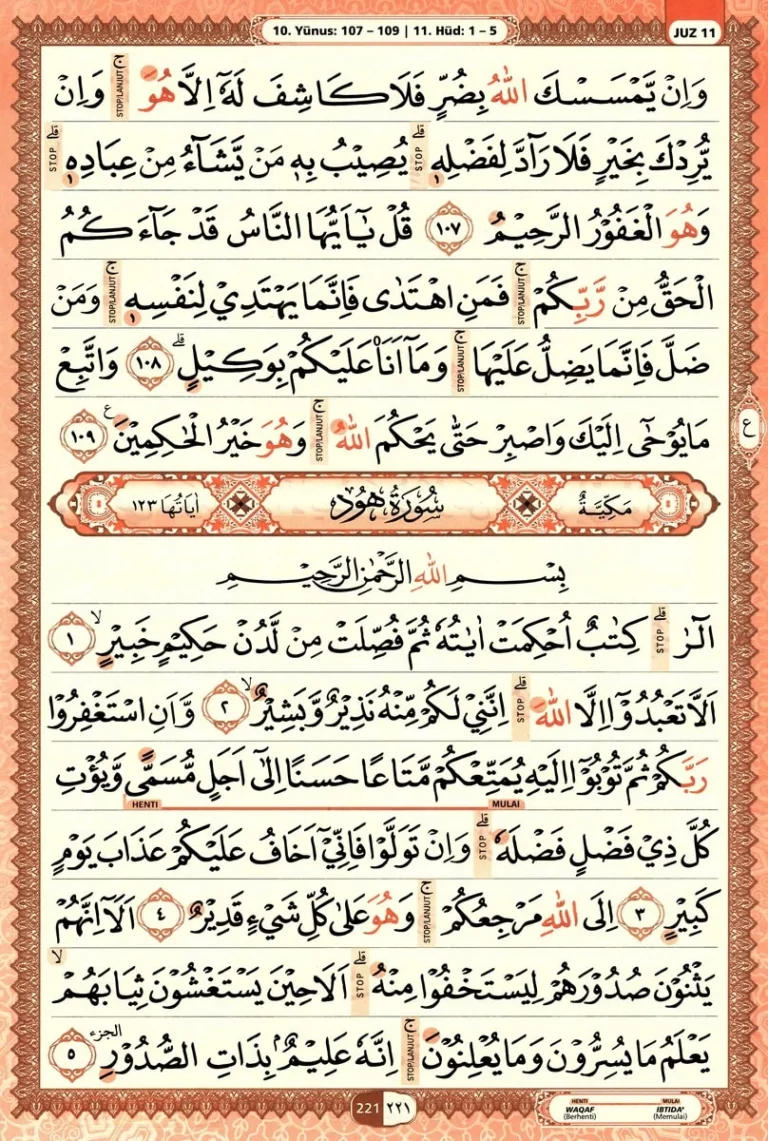 10. Yūnus: 107 – 109 | 11. Hūd: 1 – 5
JUZ 11
وَاِنْ يَّمْسَسْكَ اللّٰهُ بِضُرٍّ فَلَا كَاشِفَ لَهٗٓ اِلَّا هُوَ ۚ STOP/LANJUT وَاِنْ
يُّرِدْكَ بِخَيْرٍ فَلَا رَاۤدَّ لِفَضْلِهٖ ۗ STOP يُصِيْبُ بِهٖ مَنْ يَّشَاۤءُ مِنْ عِبَادِهٖ ۗ STOP
وَهُوَ الْغَفُوْرُ الرَّحِيْمُ ١٠٧ قُلْ يٰٓاَيُّهَا النَّاسُ قَدْ جَاۤءَكُمُ
الْحَقُّ مِنْ رَّبِّكُمْ ۚ STOP/LANJUT فَمَنِ اهْتَدٰى فَاِنَّمَا يَهْتَدِيْ لِنَفْسِهٖ ۚ STOP/LANJUT وَمَنْ
ضَلَّ فَاِنَّمَا يَضِلُّ عَلَيْهَا ۚ STOP/LANJUT وَمَآ اَنَا۠ عَلَيْكُمْ بِوَكِيْلٍ ۗ ١٠٨ وَاتَّبِعْ
مَا يُوْحٰٓى اِلَيْكَ وَاصْبِرْ حَتّٰى يَحْكُمَ اللّٰهُ ۚ STOP/LANJUT وَهُوَ خَيْرُ الْحٰكِمِيْنَ ࣖ ١٠٩
ع
مَكِّيَّةٌ سُوْرَةُ هُوْدٍ اٰيَاتُهَا ١٢٣
بِسْمِ اللّٰهِ الرَّحْمٰنِ الرَّحِيْمِ
الۤرٰ ۗ STOP كِتٰبٌ اُحْكِمَتْ اٰيٰتُهٗ ثُمَّ فُصِّلَتْ مِنْ لَّدُنْ حَكِيْمٍ خَبِيْرٍ ۙ ١
اَلَّا تَعْبُدُوْٓا اِلَّا اللّٰهَ ۗ STOP اِنَّنِيْ لَكُمْ مِّنْهُ نَذِيْرٌ وَّبَشِيْرٌ ۙ ٢ وَّاَنِ اسْتَغْفِرُوْا
رَبَّكُمْ ثُمَّ تُوْبُوْٓا اِلَيْهِ يُمَتِّعْكُمْ مَّتَاعًا حَسَنًا اِلٰٓى اَجَلٍ مُّسَمًّى وَّيُؤْتِ
MULAI HENTI
كُلَّ ذِيْ فَضْلٍ فَضْلَهٗ ۗ STOP وَاِنْ تَوَلَّوْا فَاِنِّيْٓ اَخَافُ عَلَيْكُمْ عَذَابَ يَوْمٍ
كَبِيْرٍ ٣ اِلَى اللّٰهِ مَرْجِعُكُمْ ۚ STOP/LANJUT وَهُوَ عَلٰى كُلِّ شَيْءٍ قَدِيْرٌ ٤ اَلَآ اِنَّهُمْ
يَثْنُوْنَ صُدُوْرَهُمْ لِيَسْتَخْفُوْا مِنْهُ ۗ STOP اَلَا حِيْنَ يَسْتَغْشُوْنَ ثِيَابَهُمْ ۙ
يَعْلَمُ مَا يُسِرُّوْنَ وَمَا يُعْلِنُوْنَ ۚ STOP/LANJUT اِنَّهٗ عَلِيْمٌ ۢ بِذَاتِ الصُّدُوْرِ الجزء ٥
221 ٢٢١
HENTI MULAI
WAQAF IBTIDA'
(Berhenti) (Memulai)